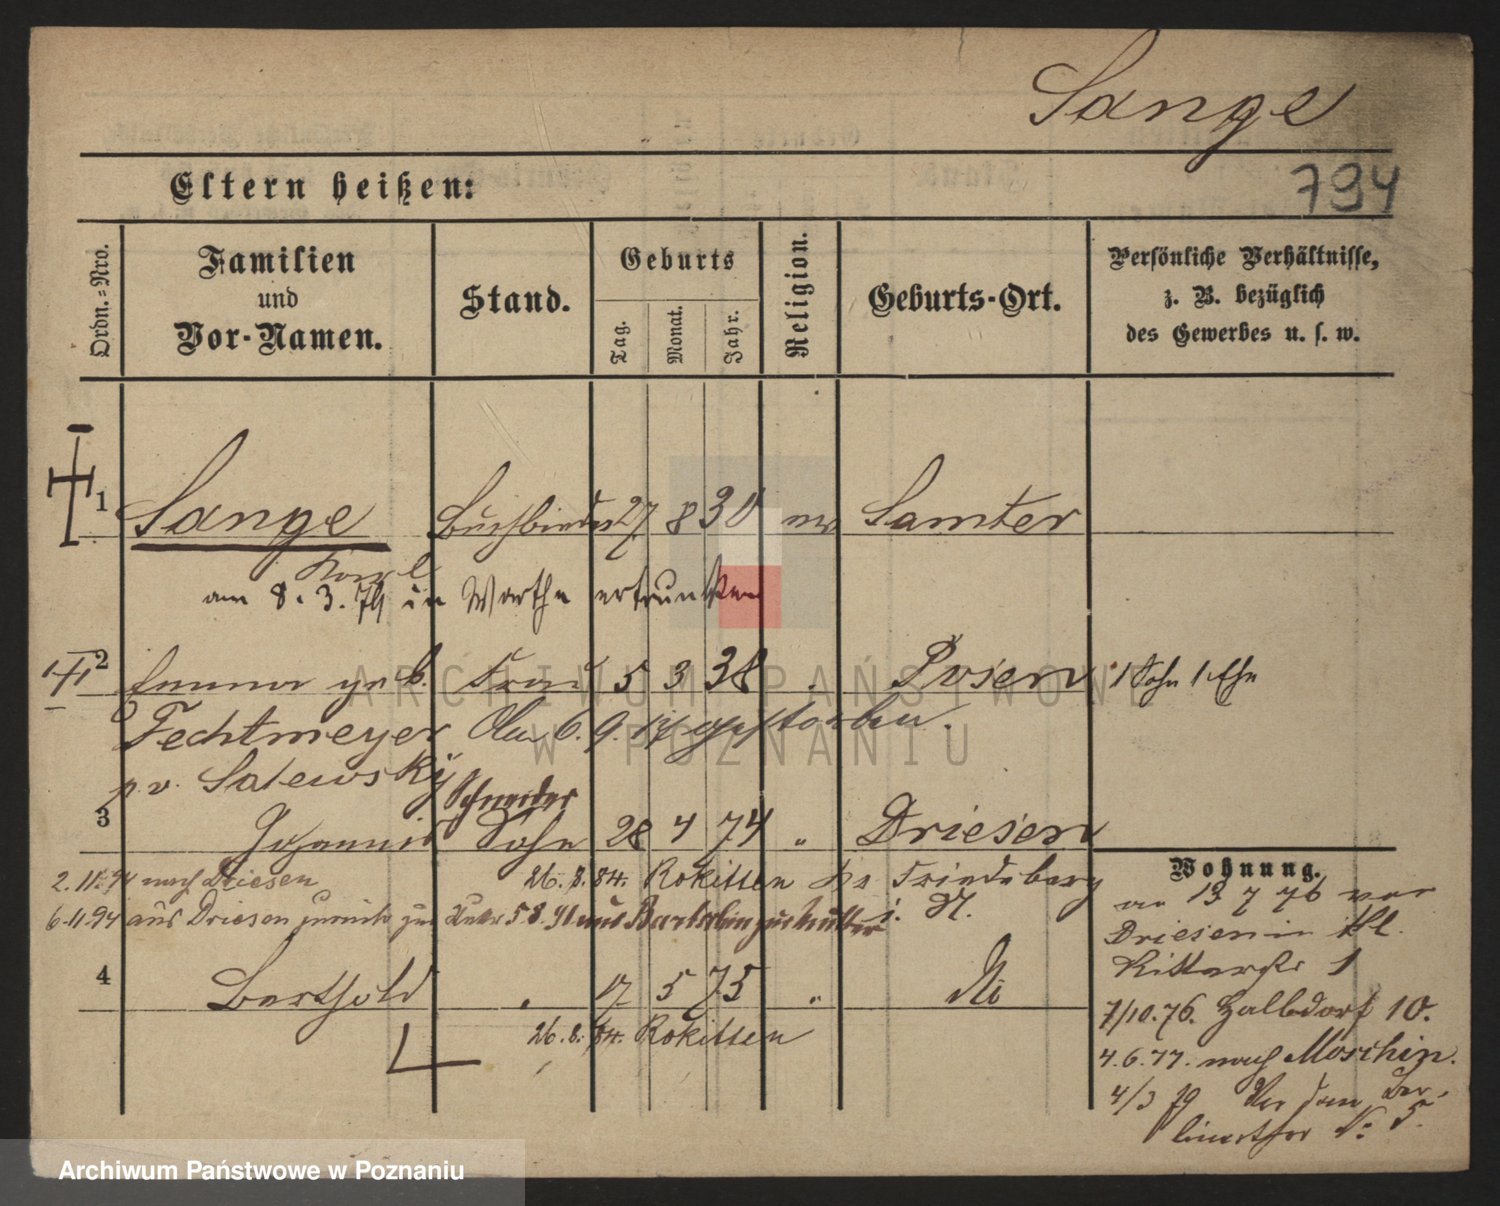 Sange
794
Eltern heißen:
Ordn.=Nro.
Familien
und
Vor-Namen.
Stand.
Geburts
Tag.
Monat.
Jahr.
Religion.
Geburts-Ort.
Persönliche Verhältnisse,
z. B. bezüglich
des Gewerbes u. s. w.
1 Sange Buchbinder 27 8 30 Samter
Karl
am 8.3.79 in Warthe ertrunken
2 Emma geb. Frau 5 3 38 Posen 1 Sohn 1. Ehe
Fechtmeyer 6. 9. gestorben.
Schneider
3 Johannes Sohn 28 4 74 " Driesen
2.11.94 nach Driesen 26.8.84. Rokitten Kr Friedeberg
6.11.94 aus Driesen zurück zur 5 8. 91 aus zur Mutter i.
Wohnung.
13 7 76 von
Driesen in Kl.
Ritterstr 1
4 Berthold 17 5 75 " do
26.8.84. Rokitten
7/10.76. Halbdorf 10.
4.6.77. nach Moschin.
4/3 79 Vor dem Ber-
linerthor No 5.
ARCHIWUM PAŃSTWOWE
W POZNANIU
Archiwum Państwowe w Poznaniu